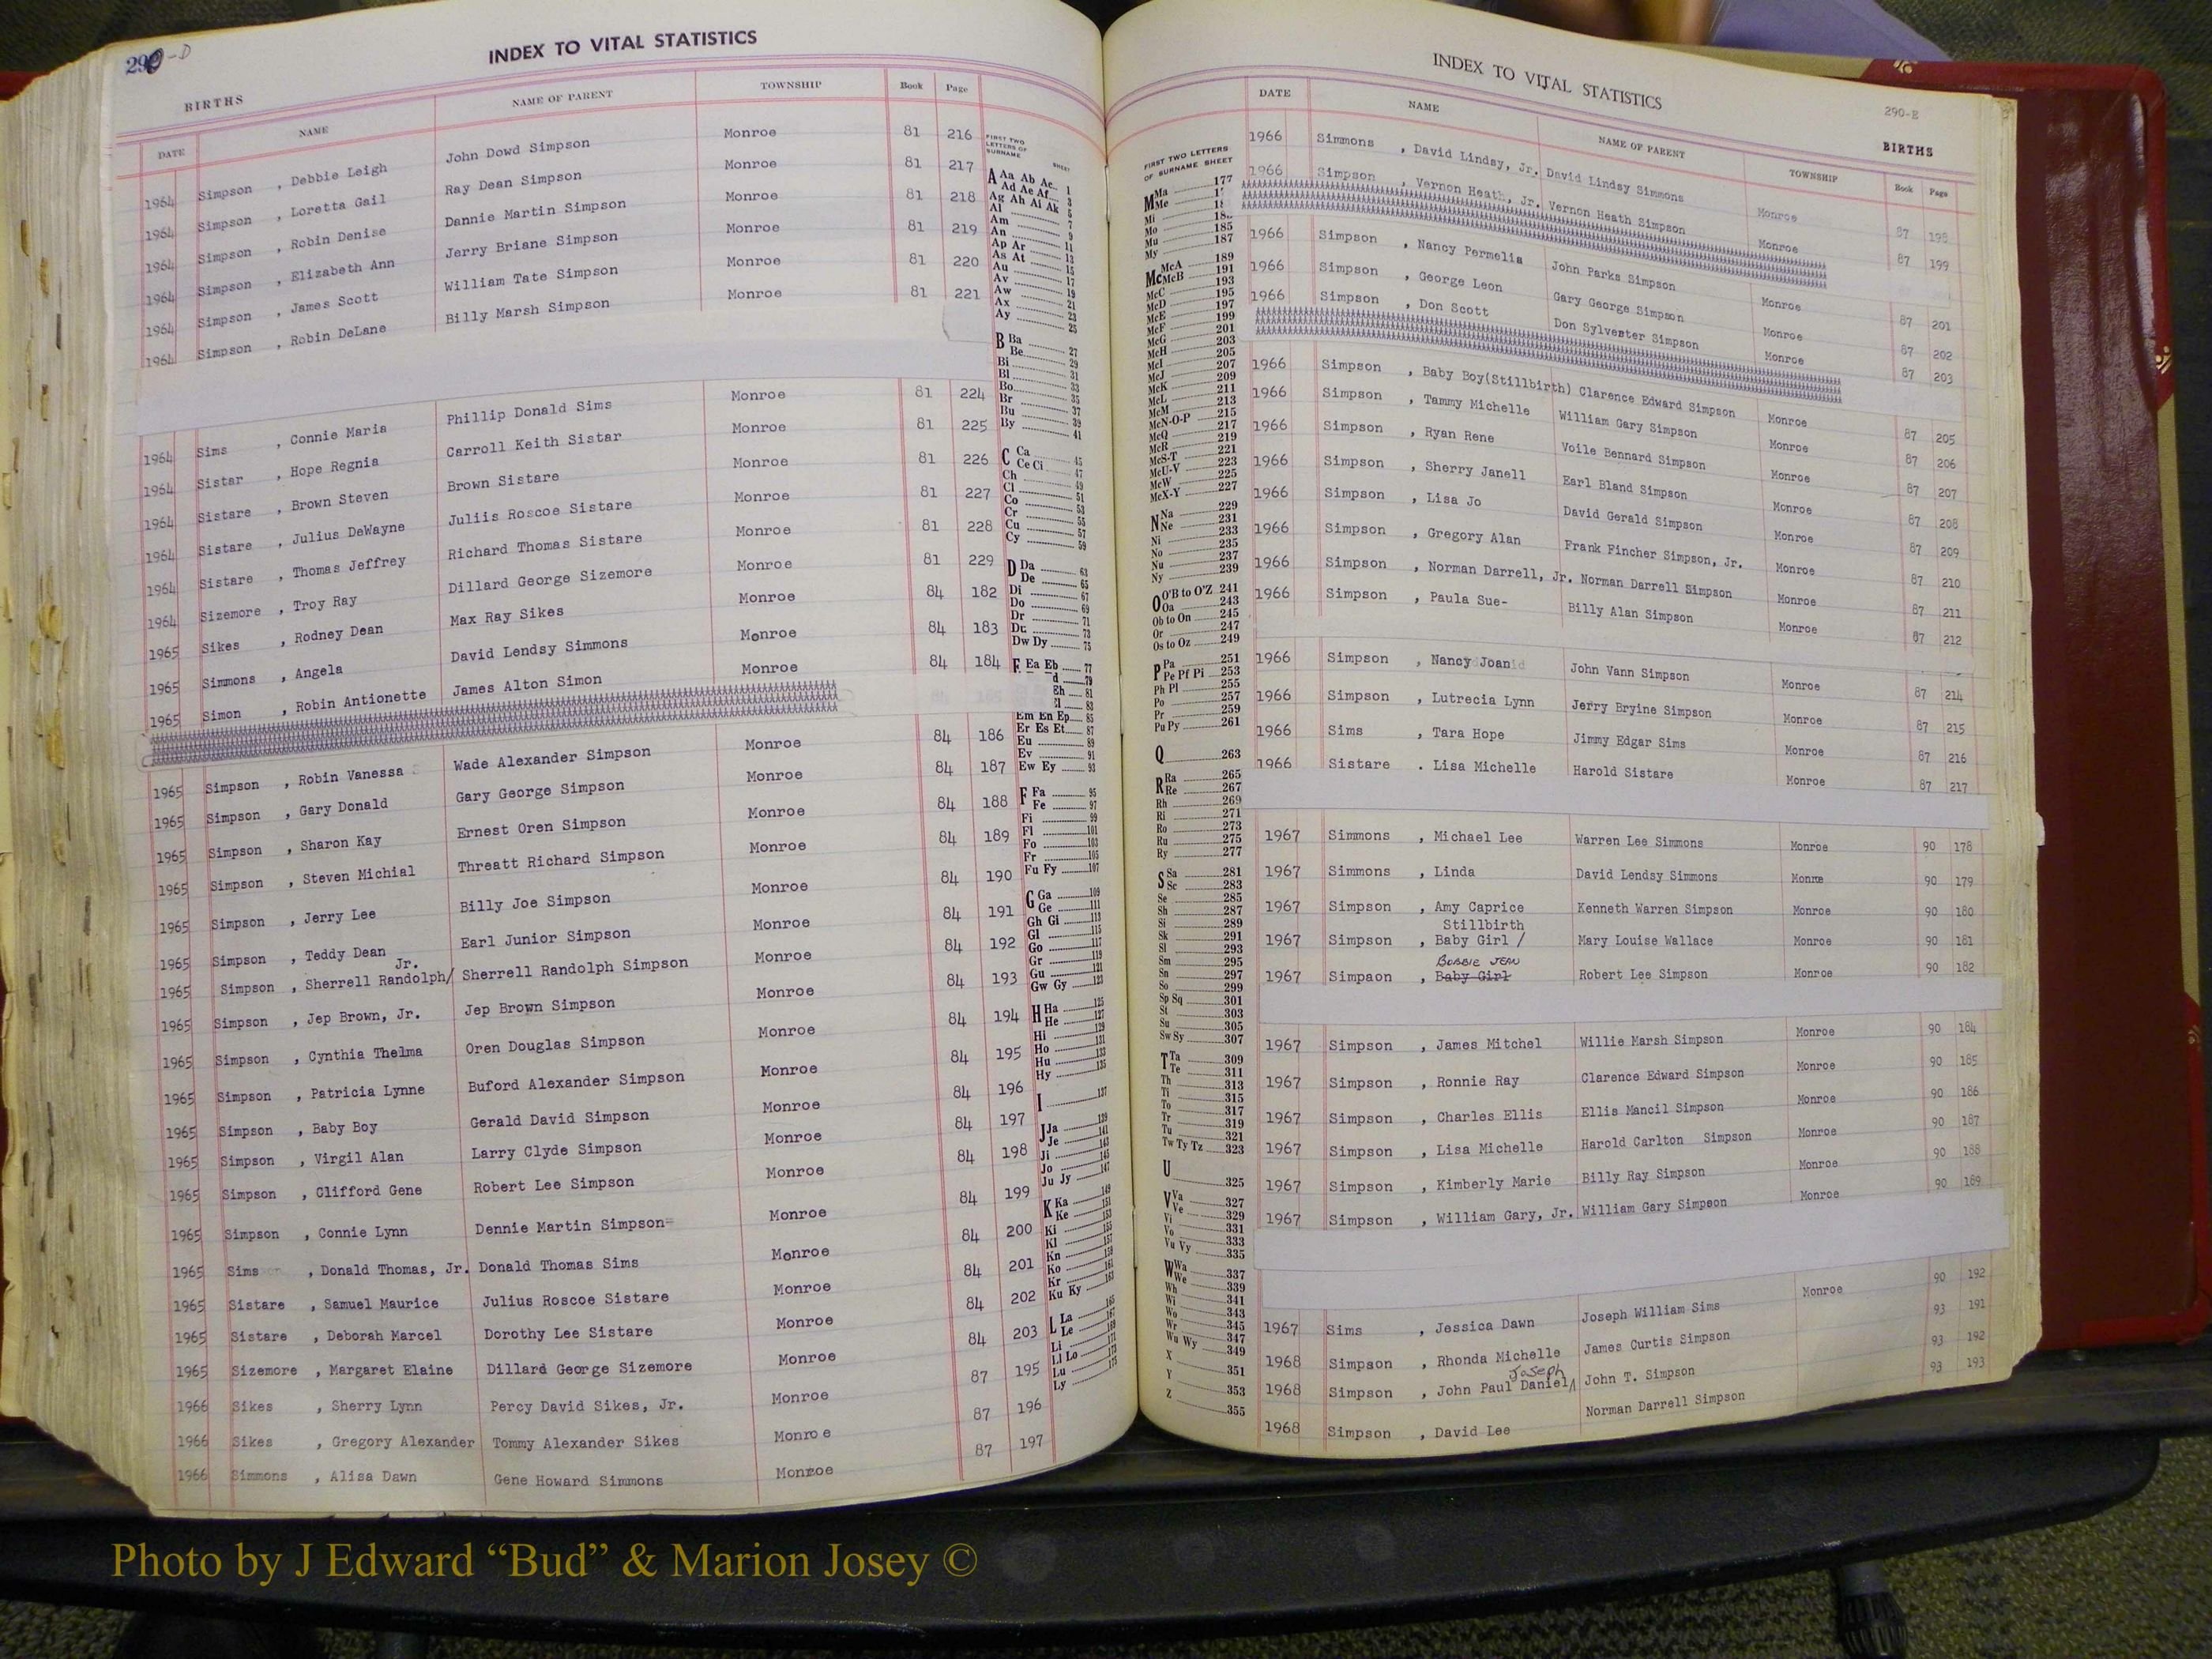 290-D
INDEX TO VITAL STATISTICS
BIRTHS
DATE NAME NAME OF PARENT TOWNSHIP Book Page
1964 Simpson , Debbie Leigh John Dowd Simpson Monroe 81 216
1964 Simpson , Loretta Gail Ray Dean Simpson Monroe 81 217
1964 Simpson , Robin Denise Dannie Martin Simpson Monroe 81 218
1964 Simpson , Elizabeth Ann Jerry Briane Simpson Monroe 81 219
1964 Simpson , James Scott William Tate Simpson Monroe 81 220
1964 Simpson , Robin DeLane Billy Marsh Simpson Monroe 81 221
1964 Sims , Connie Maria Phillip Donald Sims Monroe 81 224
1964 Sistar , Hope Regnia Carroll Keith Sistar Monroe 81 225
1964 Sistare , Brown Steven Brown Sistare Monroe 81 226
1964 Sistare , Julius DeWayne Juliis Roscoe Sistare Monroe 81 227
1964 Sistare , Thomas Jeffrey Richard Thomas Sistare Monroe 81 228
1964 Sizemore , Troy Ray Dillard George Sizemore Monroe 81 229
1965 Sikes , Rodney Dean Max Ray Sikes Monroe 84 182
1965 Simmons , Angela David Lendsy Simmons Monroe 84 183
1965 Simon , Robin Antionette James Alton Simon Monroe 84 184
1965 Simpson , Robin Vanessa Wade Alexander Simpson Monroe 84 186
1965 Simpson , Gary Donald Gary George Simpson Monroe 84 187
1965 Simpson , Sharon Kay Ernest Oren Simpson Monroe 84 188
1965 Simpson , Steven Michial Threatt Richard Simpson Monroe 84 189
1965 Simpson , Jerry Lee Billy Joe Simpson Monroe 84 190
1965 Simpson , Teddy Dean Earl Junior Simpson Monroe 84 191
Jr.
1965 Simpson , Sherrell Randolph/ Sherrell Randolph Simpson Monroe 84 192
1965 Simpson , Jep Brown, Jr. Jep Brown Simpson Monroe 84 193
1965 Simpson , Cynthia Thelma Oren Douglas Simpson Monroe 84 194
1965 Simpson , Patricia Lynne Buford Alexander Simpson Monroe 84 195
1965 Simpson , Baby Boy Gerald David Simpson Monroe 84 196
1965 Simpson , Virgil Alan Larry Clyde Simpson Monroe 84 197
1965 Simpson , Clifford Gene Robert Lee Simpson Monroe 84 198
1965 Simpson , Connie Lynn Dennie Martin Simpson Monroe 84 199
1965 Sims , Donald Thomas, Jr. Donald Thomas Sims Monroe 84 200
1965 Sistare , Samuel Maurice Julius Roscoe Sistare Monroe 84 201
1965 Sistare , Deborah Marcel Dorothy Lee Sistare Monroe 84 202
1965 Sizemore , Margaret Elaine Dillard George Sizemore Monroe 84 203
1966 Sikes , Sherry Lynn Percy David Sikes, Jr. Monroe 87 195
1966 Sikes , Gregory Alexander Tommy Alexander Sikes Monroe 87 196
1966 Simmons , Alisa Dawn Gene Howard Simmons Monroe 87 197
FIRST TWO LETTERS OF SURNAME SHEET
A Aa Ab Ac 1
Ad Ae Af 3
Ag Ah Ai Ak 5
Al 7
Am 9
An 11
Ap Ar 13
As At 15
Au 17
Av 19
Aw 21
Ax 23
Ay 25
B Ba 27
Be 29
Bi 31
Bl 33
Bo 35
Br 37
Bu 39
By 41
C Ca 45
Ce Ci 47
Ch 49
Cl 51
Co 53
Cr 55
Cu 57
Cy 59
D Da 63
De 65
Di 67
Do 69
Dr 71
Du 73
Dw Dy 75
E Ea Eb 77
d 79
Eh 81
El 83
Em En Ep 85
Er Es Et 87
Eu 89
Ev 91
Ew Ey 93
F Fa 95
Fe 97
Fi 99
Fl 101
Fo 103
Fr 105
Fu Fy 107
G Ga 109
Ge 111
Gh Gi 113
Gl 115
Go 117
Gr 119
Gu 121
Gw Gy 123
H Ha 125
He 127
Hi 129
Ho 131
Hu 133
Hy 135
I 137
J Ja 139
Je 141
Ji 143
Jo 145
Ju Jy 147
K Ka 149
Ke 151
Ki 153
Kl 155
Kn 157
Ko 159
Kr 161
Ku Ky 163
L La 165
Le 167
Li 169
Ll Lo 171
Lu 173
Ly 175
INDEX TO VITAL STATISTICS
290-E
BIRTHS
FIRST TWO LETTERS OF SURNAME SHEET
M Ma 177
Me
Mi
Mo 185
Mu 187
My
Mc McA 189
McB 191
McC 193
McD 195
McE 197
McF 199
McG 201
McH 203
McI 205
McJ 207
McK 209
McL 211
McM 213
McN-O-P 215
McQ 217
McR 219
McS-T 221
McU-V 223
McW 225
McX-Y 227
N Na 229
Ne 231
Ni 233
No 235
Nu 237
Ny 239
O O'B to O'Z 241
Oa 243
Ob to On 245
Or 247
Os to Oz 249
P Pa 251
Pe Pf Pi 253
Ph Pl 255
Po 257
Pr 259
Pu Py 261
Q 263
R Ra 265
Re 267
Rh 269
Ri 271
Ro 273
Ru 275
Ry 277
S Sa 281
Sc 283
Se 285
Sh 287
Si 289
Sk 291
Sl 293
Sm 295
Sn 297
So 299
Sp Sq 301
St 303
Su 305
Sw Sy 307
T Ta 309
Te 311
Th 313
Ti 315
To 317
Tr 319
Tu 321
Tw Ty Tz 323
U 325
V Va 327
Ve 329
Vi 331
Vo 333
Vu Vy 335
W Wa 337
We 339
Wh 341
Wi 343
Wo 345
Wr 347
Wu Wy 349
X 351
Y 353
Z 355
DATE NAME NAME OF PARENT TOWNSHIP Book Page
1966 Simmons , David Lindsy, Jr. David Lindsy Simmons Monroe 87 198
1966 Simpson , Vernon Heath, Jr. Vernon Heath Simpson Monroe 87 199
1966 Simpson , Nancy Permelia John Parks Simpson Monroe 87 201
1966 Simpson , George Leon Gary George Simpson Monroe 87 202
1966 Simpson , Don Scott Don Sylvester Simpson Monroe 87 203
1966 Simpson , Baby Boy(Stillbirth) Clarence Edward Simpson Monroe 87 205
1966 Simpson , Tammy Michelle William Gary Simpson Monroe 87 206
1966 Simpson , Ryan Rene Voile Bennard Simpson Monroe 87 207
1966 Simpson , Sherry Janell Earl Bland Simpson Monroe 87 208
1966 Simpson , Lisa Jo David Gerald Simpson Monroe 87 209
1966 Simpson , Gregory Alan Frank Fincher Simpson, Jr. Monroe 87 210
1966 Simpson , Norman Darrell, Jr. Norman Darrell Simpson Monroe 87 211
1966 Simpson , Paula Sue- Billy Alan Simpson Monroe 87 212
1966 Simpson , Nancy Joan John Vann Simpson Monroe 87 214
1966 Simpson , Lutrecia Lynn Jerry Bryine Simpson Monroe 87 215
1966 Sims , Tara Hope Jimmy Edgar Sims Monroe 87 216
1966 Sistare . Lisa Michelle Harold Sistare Monroe 87 217
1967 Simmons , Michael Lee Warren Lee Simmons Monroe 90 178
1967 Simmons , Linda David Lendsy Simmons Monre 90 179
1967 Simpson , Amy Caprice Kenneth Warren Simpson Monroe 90 180
Stillbirth
1967 Simpson , Baby Girl / Mary Louise Wallace Monroe 90 181
BOBBIE JEAN
1967 Simpaon , Baby Girl Robert Lee Simpson Monroe 90 182
1967 Simpson , James Mitchel Willie Marsh Simpson Monroe 90 184
1967 Simpson , Ronnie Ray Clarence Edward Simpson Monroe 90 185
1967 Simpson , Charles Ellis Ellis Mancil Simpson Monroe 90 186
1967 Simpson , Lisa Michelle Harold Carlton Simpson Monroe 90 187
1967 Simpson , Kimberly Marie Billy Ray Simpson Monroe 90 188
1967 Simpson , William Gary, Jr. William Gary Simpson Monroe 90 189
1967 Sims , Jessica Dawn Joseph William Sims Monroe 90 192
1968 Simpson , Rhonda Michelle James Curtis Simpson 93 191
Joseph
1968 Simpson , John Paul Daniel John T. Simpson 93 192
1968 Simpson , David Lee Norman Darrell Simpson 93 193
Photo by J Edward “Bud” & Marion Josey ©